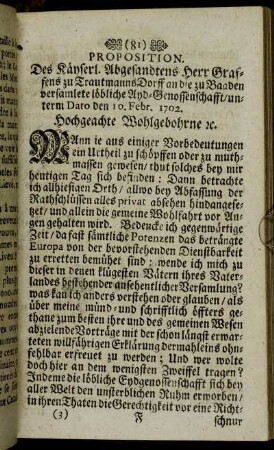 (81)
PROPOSITION.
Des Käyserl. Abgesandtens Herr Graf-
fens zu TrautmannsDorff an die zu Baaden
versamlete löbliche Ayd-Genossenschafft/un-
term Dato den 10. Febr. 1702.
Hochgeachte Wohlgebohrne ꝛc.
WAnn je aus einiger Vorbedeutungen
ein Urtheil zu schöpffen oder zu muth-
massen gewesen/ thut solches bey mir
heutigen Tag sich befinden; Dann betrachte
ich allhiesigen Orth/ allwo bey Abfassung der
Rathschlüssen alles privat absehen hindangese-
het/ und allein die gemeine Wohlfahrt vor Au-
gen gehalten wird. Bedencke ich gegenwärtige
Zeit/ da fast sämtliche Potenzen das beträngte
Europa von der bevorstehenden Dienstbarkeit
zu erretten bemühet sind; wende ich mich zu
dieser in denen klügesten Vätern ihres Vater-
landes bestehender ansehentlicher Versamlung?
was kan ich anders verstehen oder glauben/ als
über meine münd- und schrifftlich öffters ge-
thane zum besten ihre und des gemeinen Wesen
abzielende Vorträge mit der schon längst erwar-
teten willfährigen Erklärung dermahleins oh-
nfehlbar erfreuet zu werden; Und wer wolte
doch hier an dem wenigsten Zweiffel tragen?
Indeme die löbliche Eydgenossenschafft sich bey
aller Welt den unsterblichen Ruhm erworben/
in ihren Thaten die Gerechtigkeit vor eine Richt-
(3) F schnur